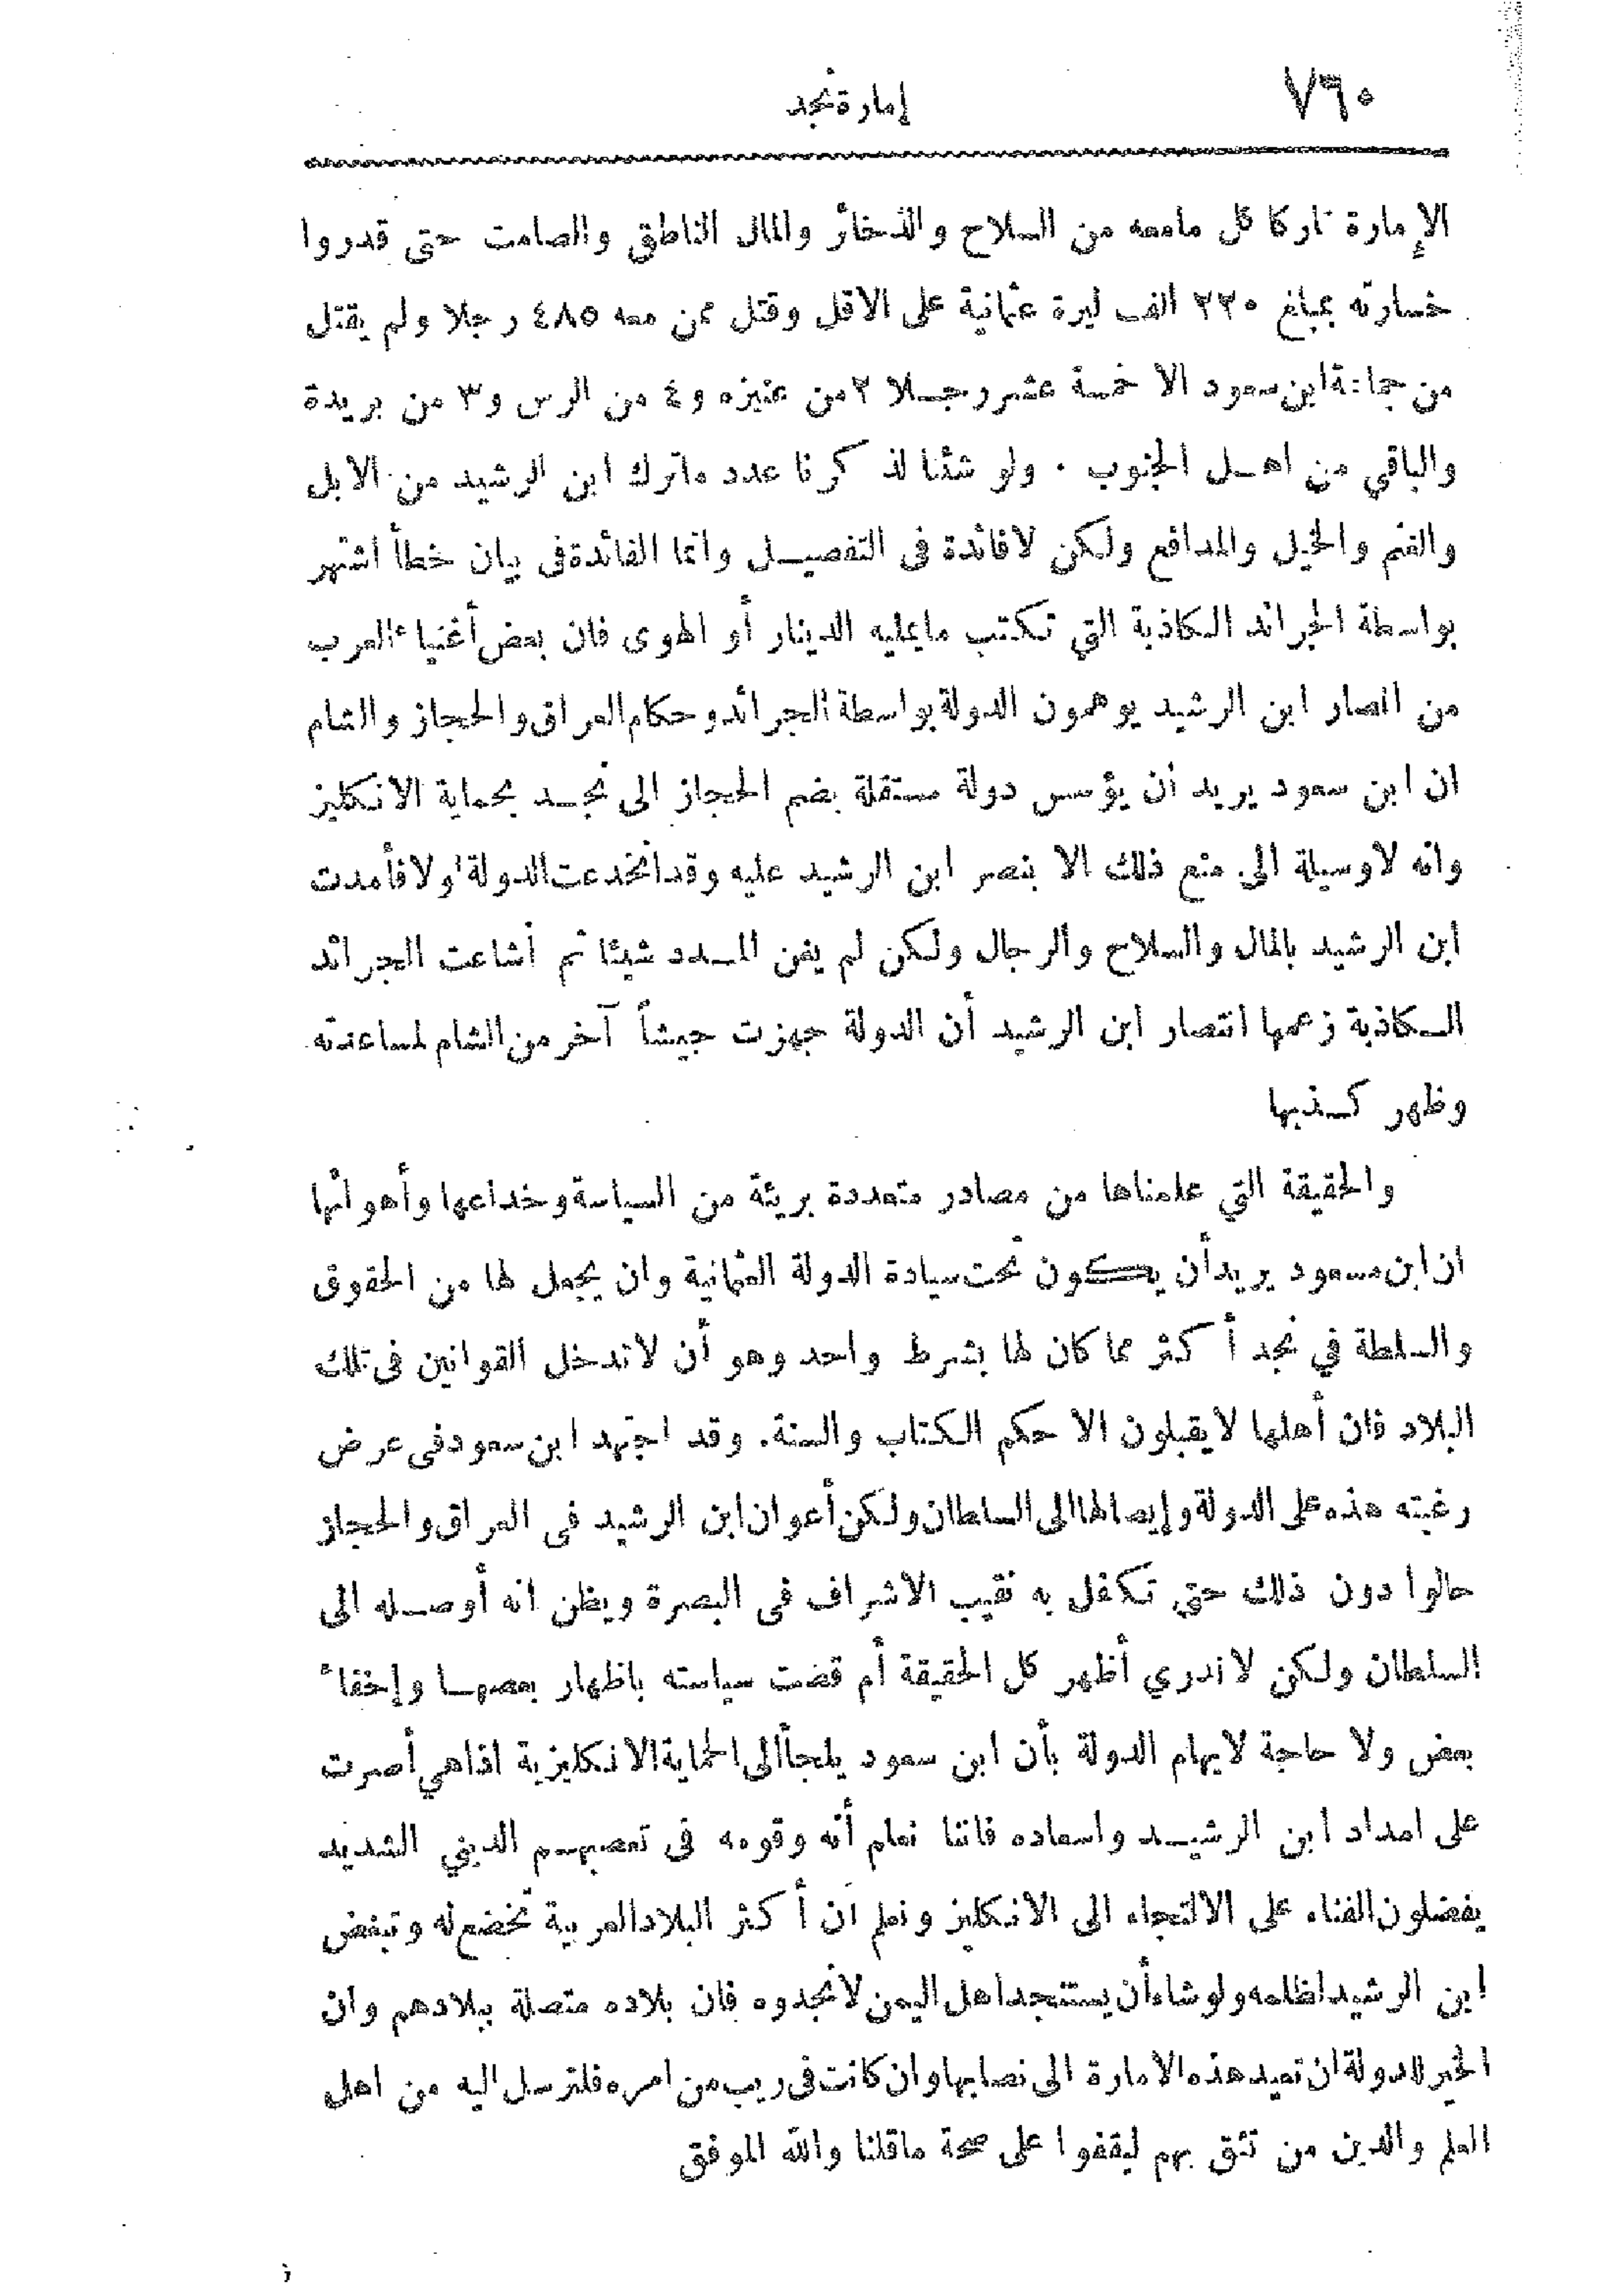 ٧٦٠
إمارة نجد
الإمارة تاركا كل مامعه من السلاح والذخائر والمال الناطق والصامت حتى قدروا
خسارته بمبلغ ٢٢٠ الف ليرة عثمانية على الاقل وقتل ممن معه ٤٨٥ رجلا ولم يقتل
من جماعة ابن سعود الا خمسة عشر رجلا ٢ من عنيزه و٤ من الرس و٣ من بريدة
والباقي من اهل الجنوب . ولو شئنا لذكرنا عدد ماترك ابن الرشيد من الابل
والغنم والخيل والمدافع ولكن لافائدة في التفصيل وانما الفائدة في بيان خطأ اشتهر
بواسطة الجرائد الكاذبة التي تكتب مايمليه الدينار أو الهوى فان بعض أغنياء العرب
من انصار ابن الرشيد يوهمون الدولة بواسطة الجرائد وحكام العراق والحجاز والشام
ان ابن سعود يريد أن يؤسس دولة مستقلة بضم الحجاز الى نجد بحماية الانكليز
وانه لاوسيلة الى منع ذلك الا بنصر ابن الرشيد عليه وقد انخدعت الدولة اولا فأمدت
ابن الرشيد بالمال والسلاح والرجال ولكن لم يغن المدد شيئا ثم أشاعت الجرائد
الكاذبة زعمها انتصار ابن الرشيد أن الدولة جهزت جيشاً آخر من الشام لمساعدته
وظهر كذبها
والحقيقة التي علمناها من مصادر متعددة بريئة من السياسة وخداعها وأهوائها
ان ابن سعود يريد أن يكون تحت سيادة الدولة العثمانية وان يجعل لها من الحقوق
والسلطة في نجد أكثر مما كان لها بشرط واحد وهو أن لاتدخل القوانين في تلك
البلاد فان أهلها لايقبلون الا حكم الكتاب والسنة. وقد اجتهد ابن سعود في عرض
رغبته هذه على الدولة وإيصالها الى السلطان ولكن أعوان ابن الرشيد في العراق والحجاز
حالوا دون ذلك حتى تكفل به نقيب الاشراف في البصرة ويظن انه أوصله الى
السلطان ولكن لاندري أظهر كل الحقيقة أم قضت سياسته باظهار بعضها وإخفاء
بعض ولا حاجة لايهام الدولة بأن ابن سعود يلجأ الى الحماية الانكليزية اذا هي أصرت
على امداد ابن الرشيد واسعاده فاننا نعلم أنه وقومه في تعصبهم الديني الشديد
يفضلون الفناء على الالتجاء الى الانكليز ونعلم ان أكثر البلاد العربية تخضع له وتبغض
ابن الرشيد لظلمه ولو شاء أن يستنجد اهل اليمن لأنجدوه فان بلاده متصلة ببلادهم وان
الخير للدولة ان تعيد هذه الامارة الى نصابها وان كانت في ريب من امره فلترسل اليه من اهل
العلم والدين من تثق بهم ليقفوا على صحة ماقلنا والله الموفق